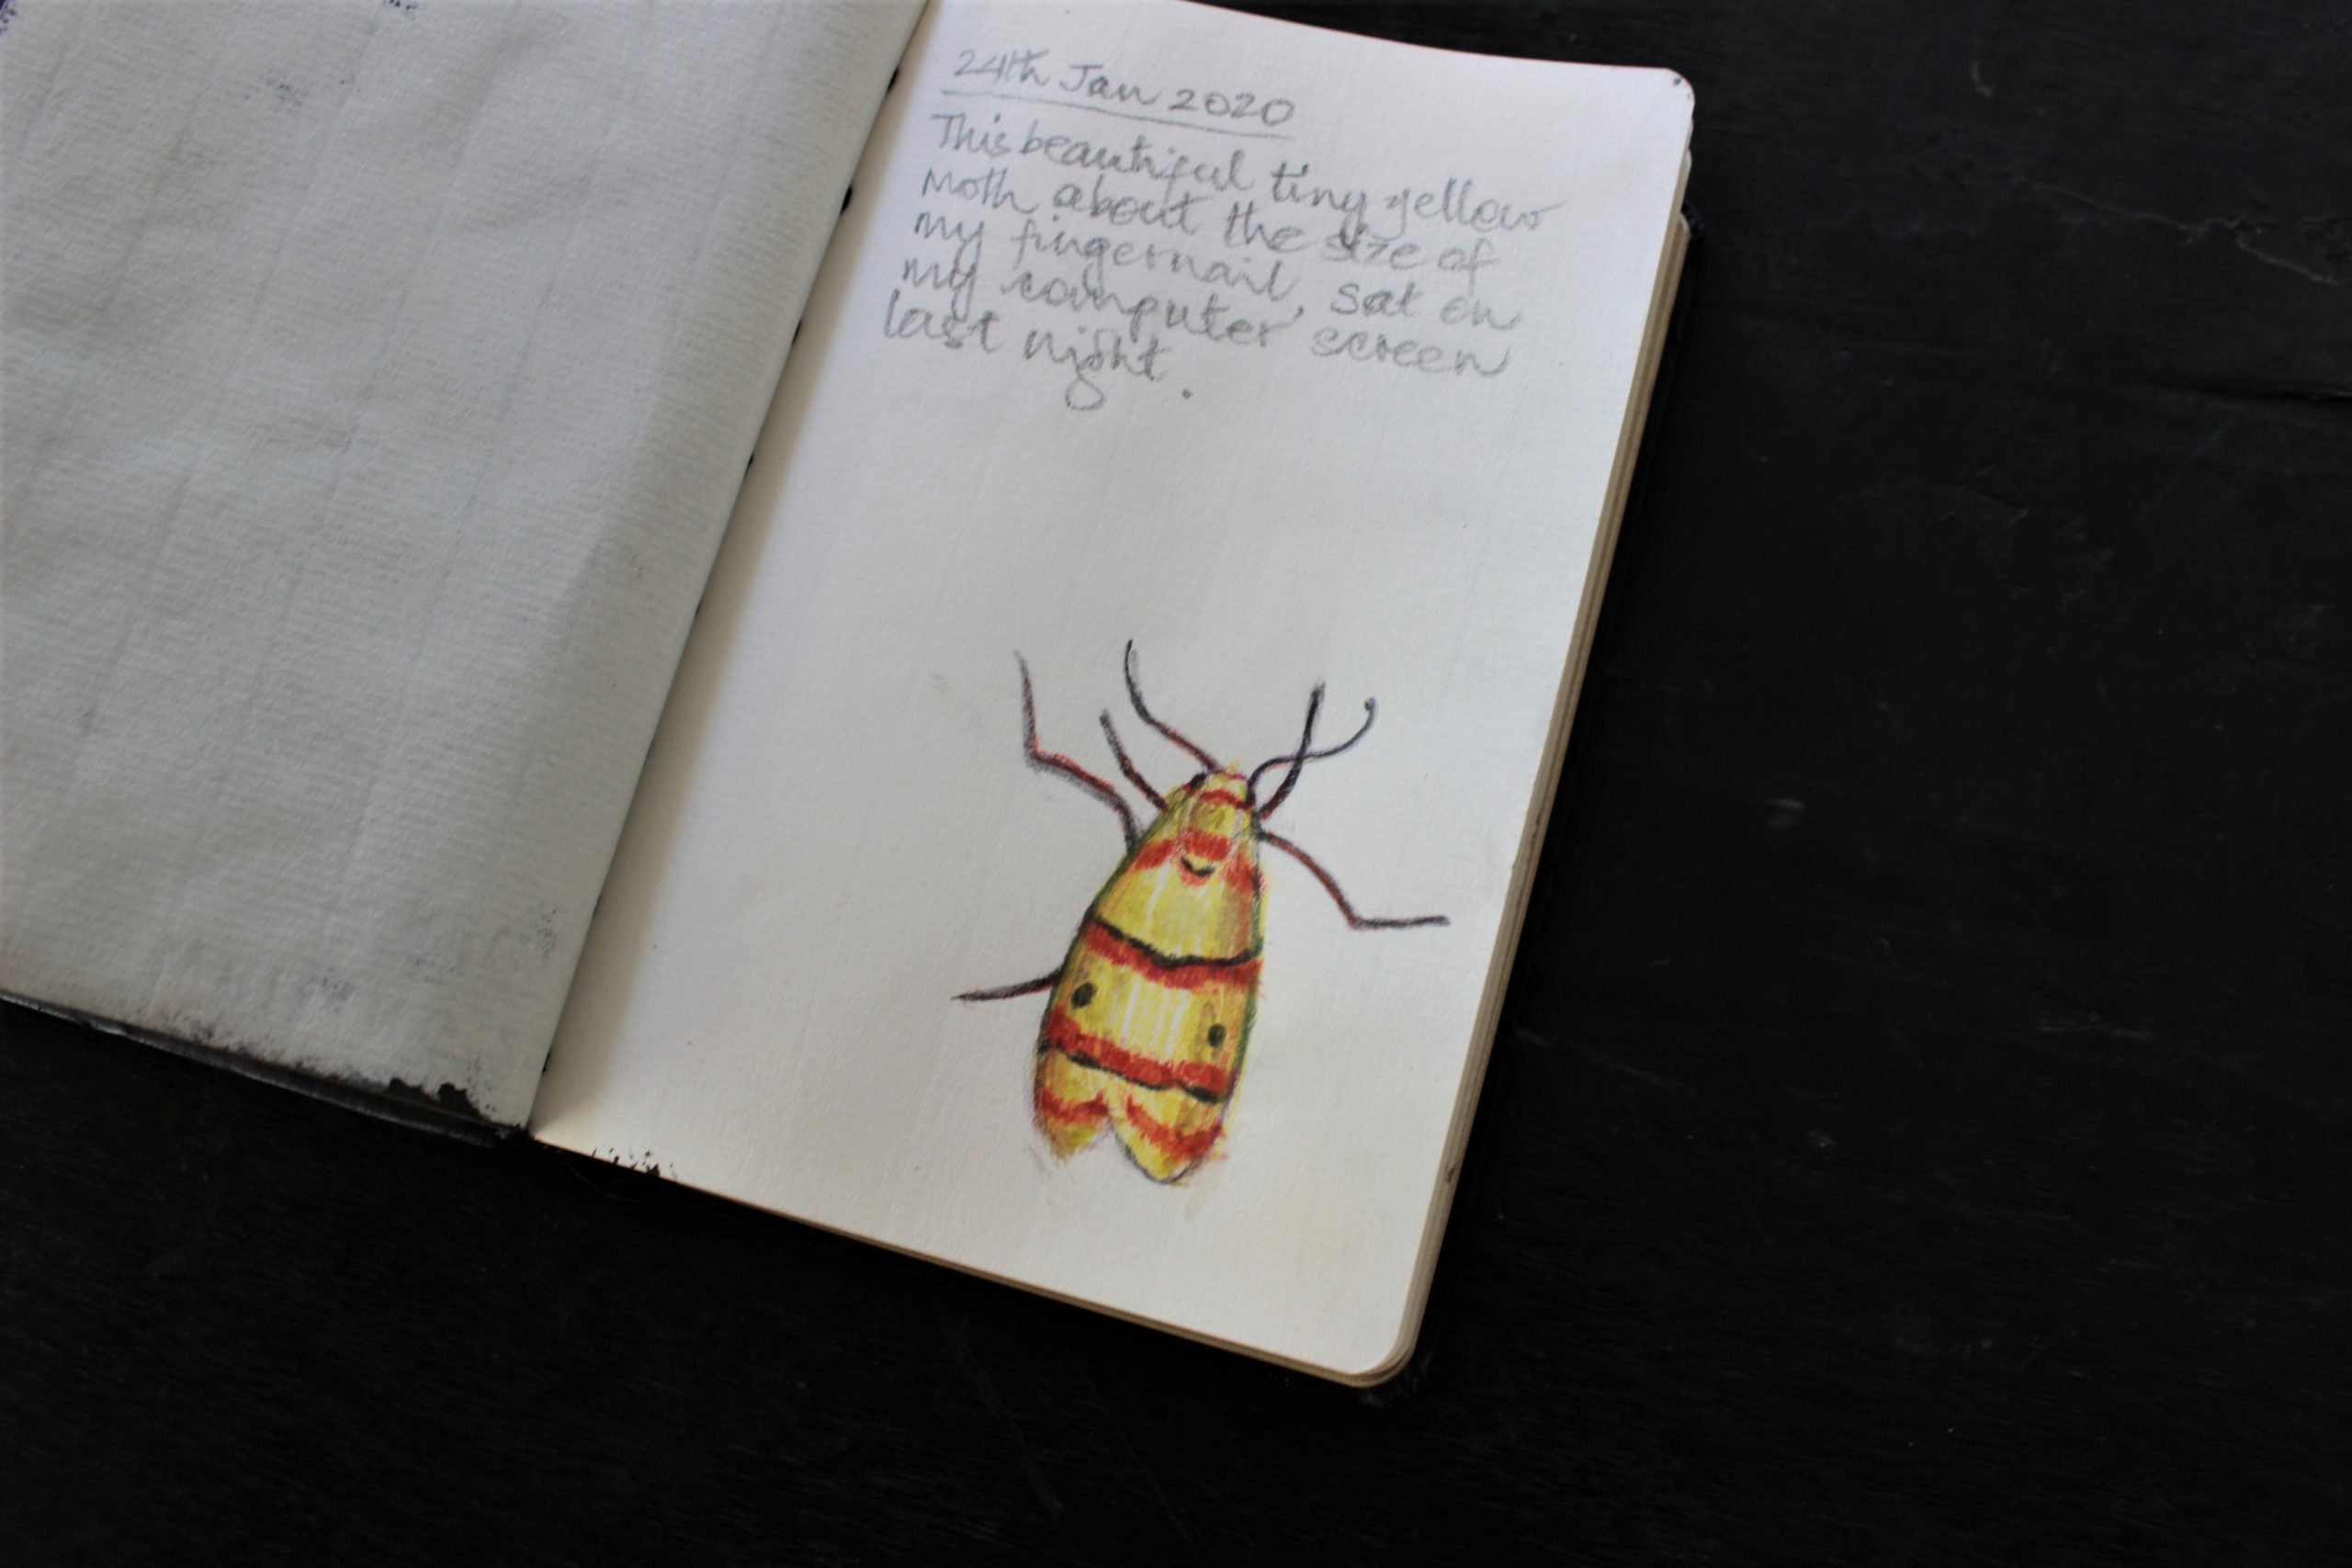 24th Jan 2020
This beautiful tiny yellow
moth about the size of
my fingernail, sat on
my computer screen
last night.